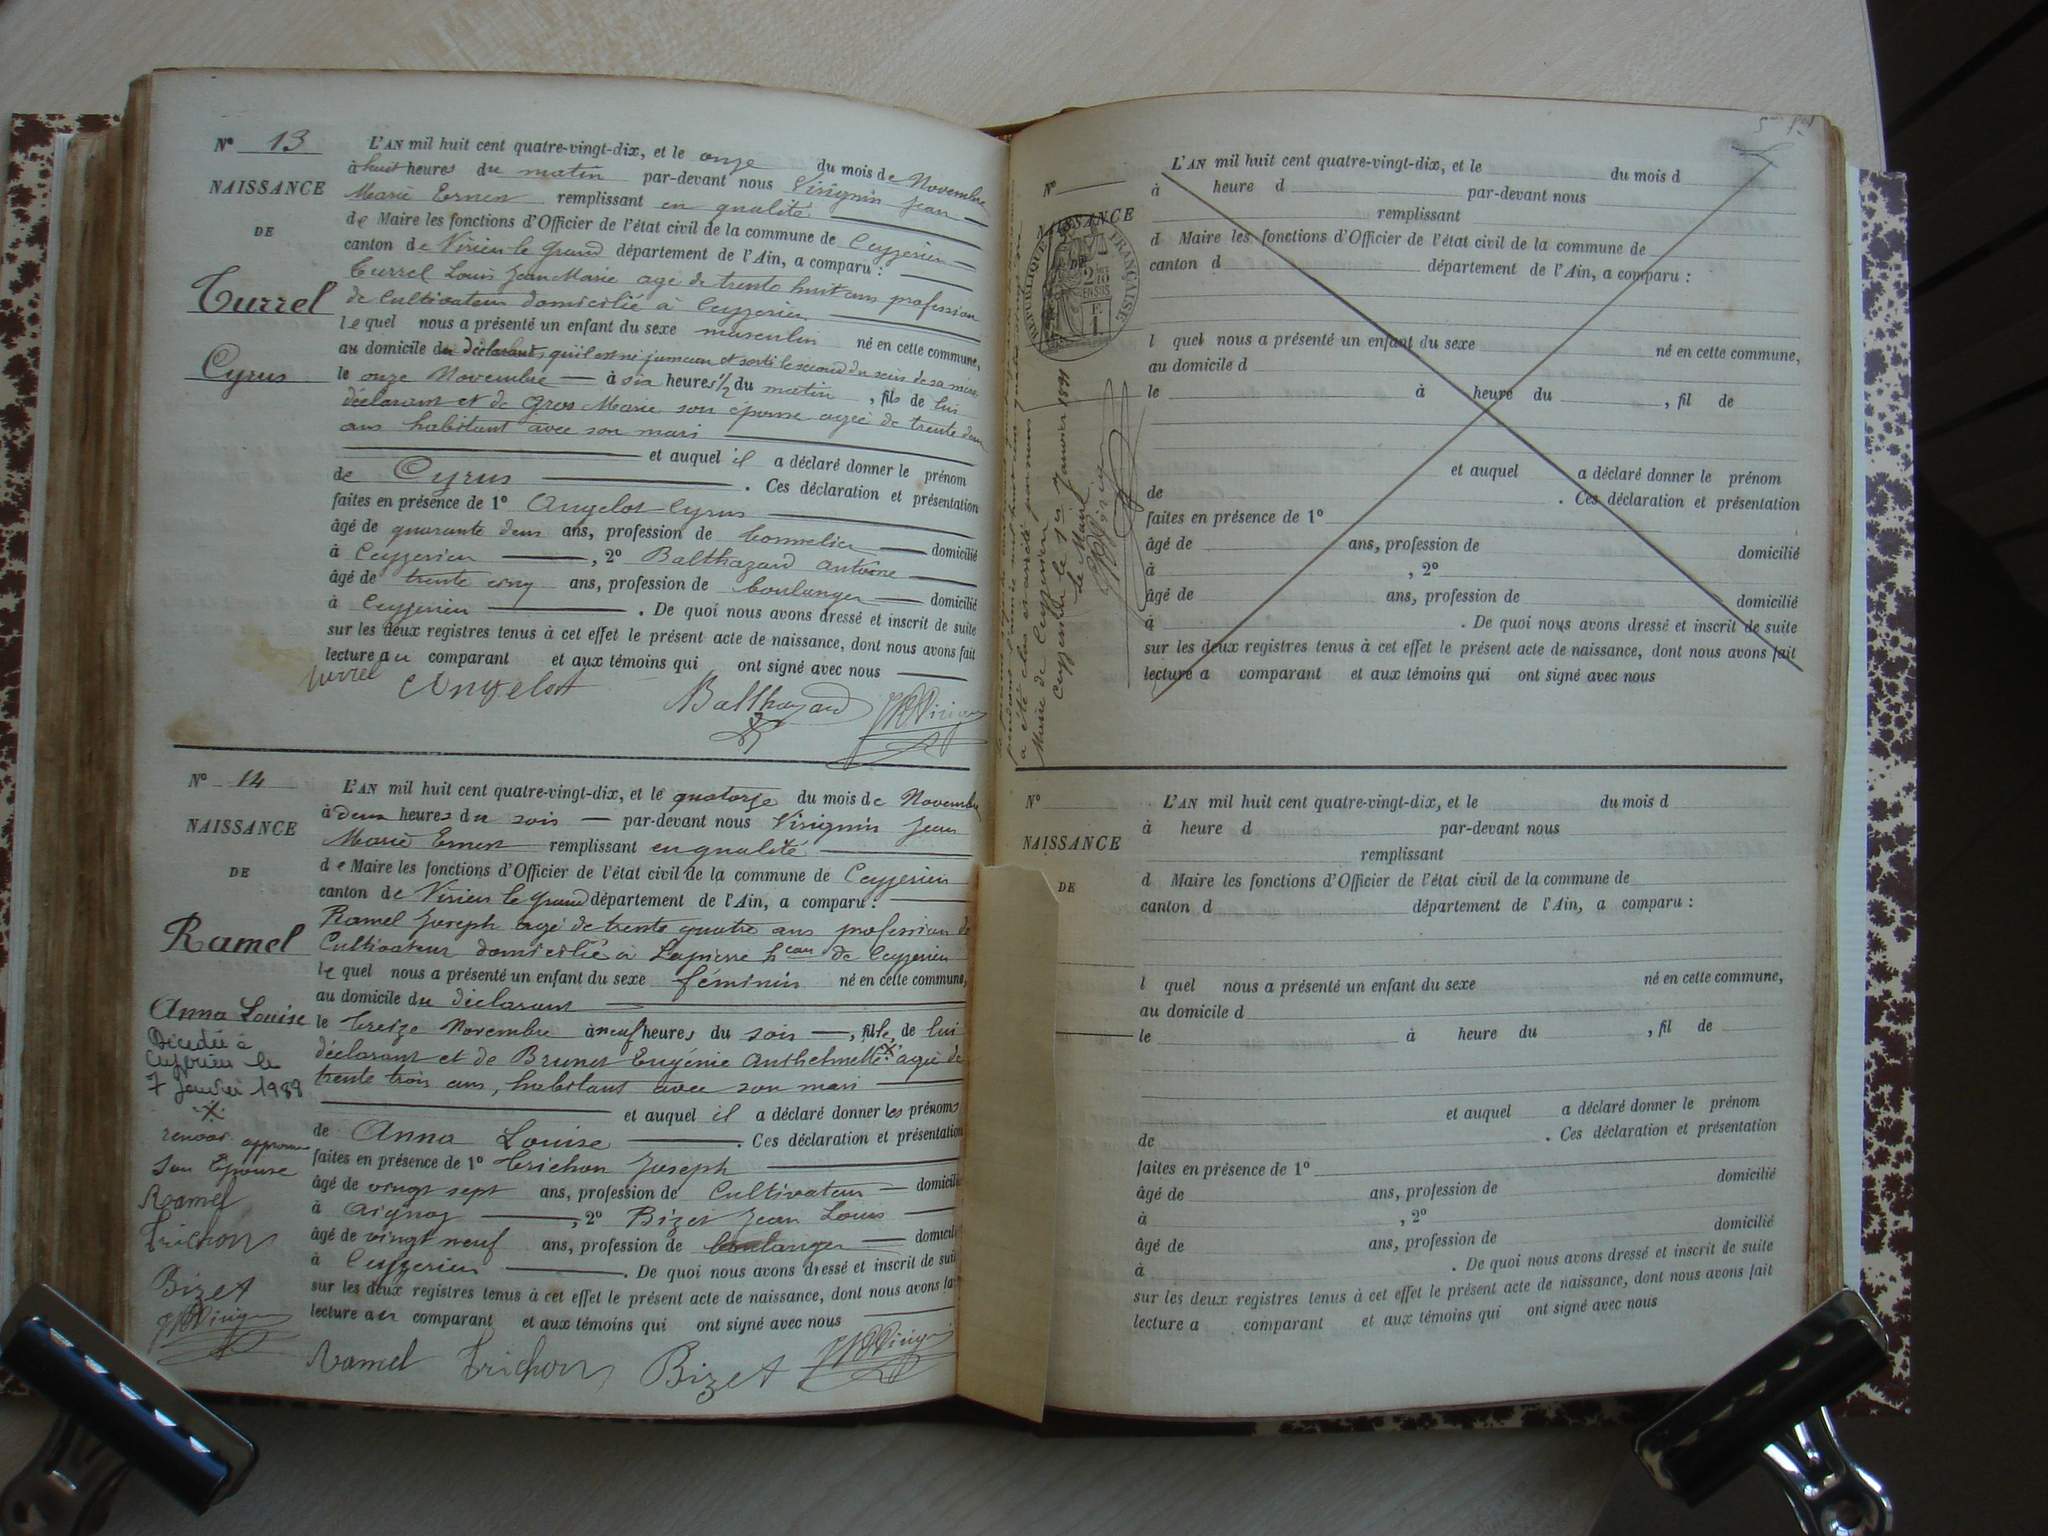 N° 13
NAISSANCE
DE
Turrel
Cyrus
L'AN mil huit cent quatre-vingt-dix, et le onze du mois de Novembre
à huit heures du matin par-devant nous Virignin Jean
Marie Ernest remplissant en qualité
de Maire les fonctions d'Officier de l'état civil de la commune de Ceyzerieu
canton de Virieu le Grand département de l'Ain, a comparu :
Turrel Louis Jean Marie age de trente huit ans profession
de Cultivateur domicilié à Ceyzerieu
lequel nous a présenté un enfant du sexe masculin né en cette commune,
au domicile du déclarant, qu'il est né jumeau et sorti le second du sein de sa mère
le onze Novembre à six heures 1/2 du matin, fils de lui
déclarant et de Gros Marie son épouse agée de trente deux
ans habitant avec son mari
et auquel il a déclaré donner le prénom
de Cyrus. Ces déclaration et présentation
faites en présence de 1° Angelot Cyrus
âgé de quarante deux ans, profession de tonnelier domicilié
à Ceyzerieu, 2° Balthazard antoine
âgé de trente cinq ans, profession de boulanger domicilié
à Ceyzerieu. De quoi nous avons dressé et inscrit de suite
sur les deux registres tenus à cet effet le présent acte de naissance, dont nous avons fait
lecture au comparant et aux témoins qui ont signé avec nous
Turrel Angelot Balthazard JM Virignin
N° 14
NAISSANCE
DE
Ramel
Anna Louise
Décédée à
Ceyzerieu le
7 Janvier 1988
X
renvoi approuvé
son Epouse
Ramel
Trichon
Bizet
JM Virignin
L'AN mil huit cent quatre-vingt-dix, et le quatorze du mois de Novembre
à deux heures du soir par-devant nous Virignin Jean
Marie Ernest remplissant en qualité
de Maire les fonctions d'Officier de l'état civil de la commune de Ceyzerieu
canton de Virieu le Grand département de l'Ain, a comparu :
Ramel Joseph agé de trente quatre ans profession de
Cultivateur domicilié à Lapierre heau de Ceyzerieu
lequel nous a présenté un enfant du sexe féminin né en cette commune,
au domicile du déclarant
le treize Novembre à neuf heures du soir, fille de lui
déclarant et de Brunet Eugénie Anthelmette X agée de
trente trois ans, habitant avec son mari
et auquel il a déclaré donner les prénoms
de Anna Louise. Ces déclaration et présentation
faites en présence de 1° Trichon Joseph
âgé de vingt sept ans, profession de Cultivateur domicilié
à Aignoz, 2° Bizet Jean Louis
âgé de vingt neuf ans, profession de boulanger domicilié
à Ceyzerieu. De quoi nous avons dressé et inscrit de suite
sur les deux registres tenus à cet effet le présent acte de naissance, dont nous avons fait
lecture au comparant et aux témoins qui ont signé avec nous
Ramel Trichon Bizet JM Virignin
N°
NAISSANCE
DE
RÉPUBLIQUE FRANÇAISE
a été clos et arrêté par nous
Maire de Ceyzerieu
Ceyzerieu le 1er Janvier 1891
Le Maire
L'AN mil huit cent quatre-vingt-dix, et le du mois d
à heure d par-devant nous
remplissant
d Maire les fonctions d'Officier de l'état civil de la commune de
canton d département de l'Ain, a comparu :
l quel nous a présenté un enfant du sexe né en cette commune,
au domicile d
le à heure du , fil de
et auquel a déclaré donner le prénom
de . Ces déclaration et présentation
faites en présence de 1°
âgé de ans, profession de domicilié
à , 2°
âgé de ans, profession de domicilié
à . De quoi nous avons dressé et inscrit de suite
sur les deux registres tenus à cet effet le présent acte de naissance, dont nous avons fait
lecture a comparant et aux témoins qui ont signé avec nous
N°
NAISSANCE
DE
L'AN mil huit cent quatre-vingt-dix, et le du mois d
à heure d par-devant nous
remplissant
d Maire les fonctions d'Officier de l'état civil de la commune de
canton d département de l'Ain, a comparu :
l quel nous a présenté un enfant du sexe né en cette commune,
au domicile d
le à heure du , fil de
et auquel a déclaré donner le prénom
de . Ces déclaration et présentation
faites en présence de 1°
âgé de ans, profession de domicilié
à , 2°
âgé de ans, profession de domicilié
à . De quoi nous avons dressé et inscrit de suite
sur les deux registres tenus à cet effet le présent acte de naissance, dont nous avons fait
lecture a comparant et aux témoins qui ont signé avec nous